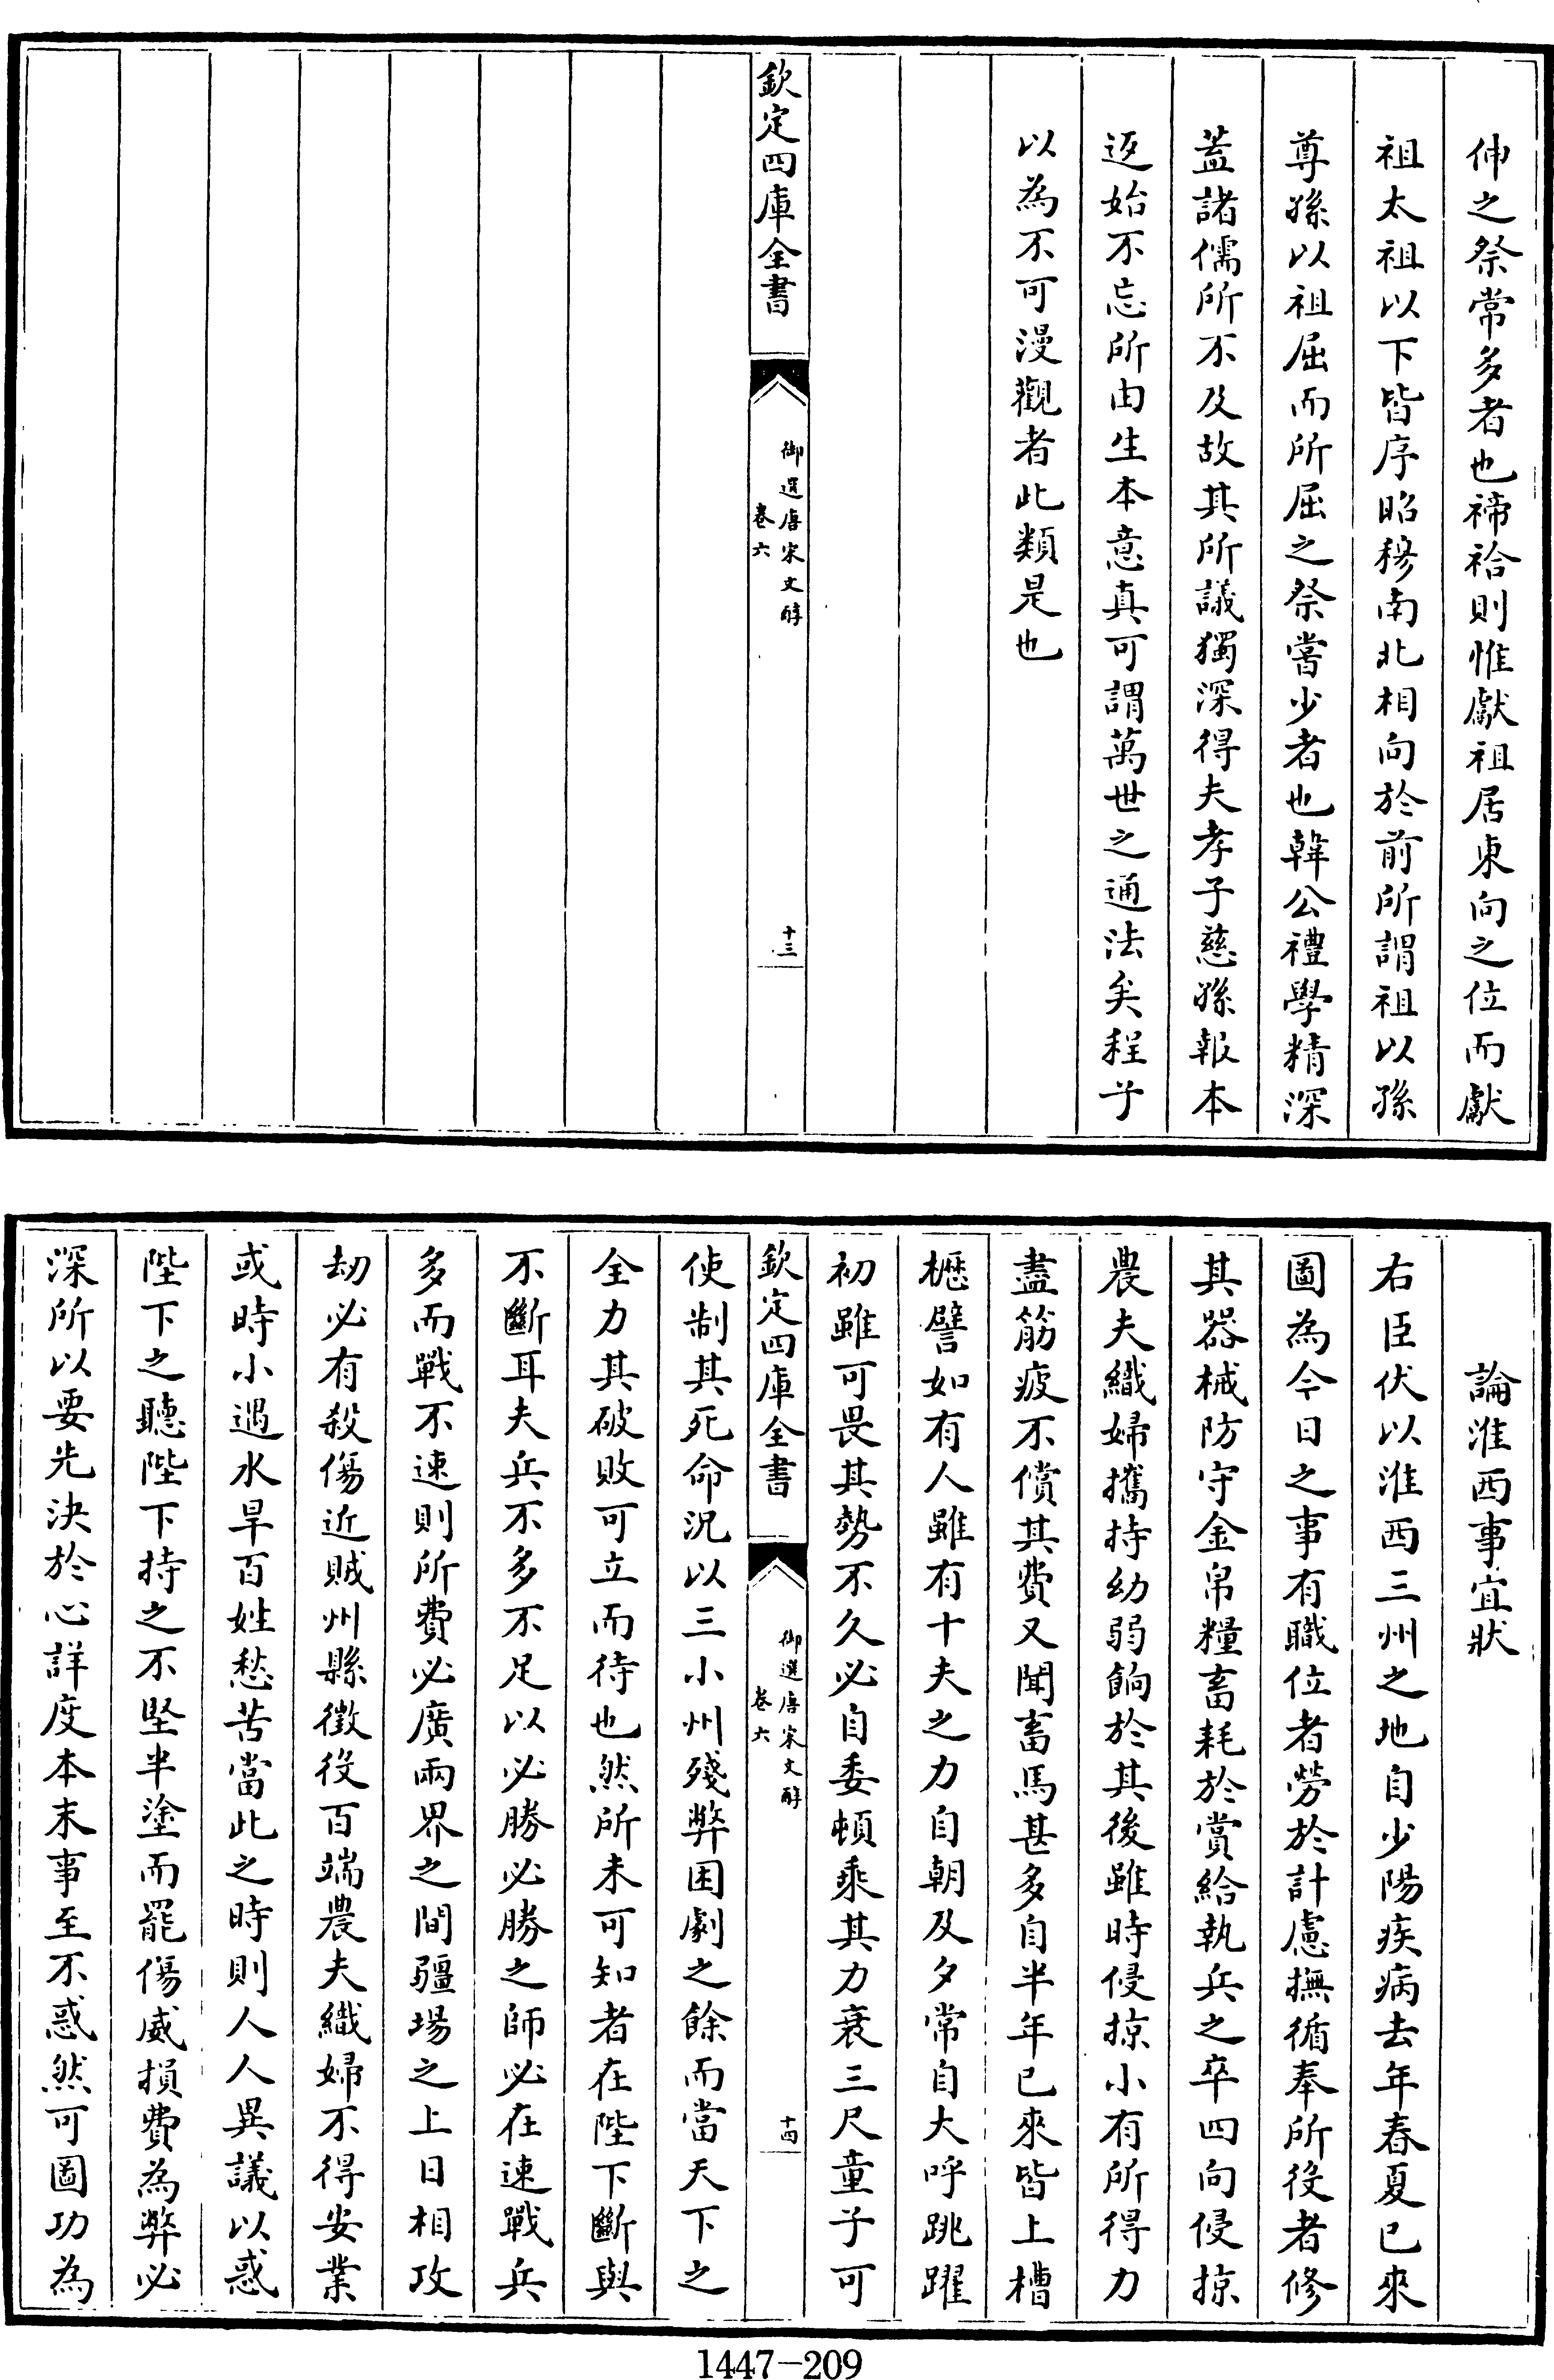 伸之祭常多者也禘祫則惟獻祖居東向之位而獻
祖太祖以下皆序昭穆南北相向於前所謂祖以孫
尊孫以祖屈而所屈之祭嘗少者也韓公禮學精深
蓋諸儒所不及故其所議獨深得夫孝子慈孫報本
返始不忘所由生本意真可謂萬世之通法矣程子
以為不可漫觀者此類是也
欽定四庫全書
御選唐宋文醇
卷六
十三
論淮西事宜狀
右臣伏以淮西三州之地自少陽疾病去年春夏已來
圖為今日之事有職位者勞於計慮撫循奉所役者修
其器械防守金帛糧畜耗於賞給執兵之卒四向侵掠
農夫織婦攜持幼弱餉於其後雖時侵掠小有所得力
盡筋疲不償其費又聞畜馬甚多自半年已來皆上槽
櫪譬如有人雖有十夫之力自朝及夕常自大呼跳躍
初雖可畏其勢不久必自委頓乘其力衰三尺童子可
欽定四庫全書
御選唐宋文醇
卷六
十四
使制其死命況以三小州殘弊困劇之餘而當天下之
全力其破敗可立而待也然所未可知者在陛下斷與
不斷耳夫兵不多不足以必勝必勝之師必在速戰兵
多而戰不速則所費必廣兩界之間疆場之上日相攻
劫必有殺傷近賊州縣徵役百端農夫織婦不得安業
或時小遇水旱百姓愁苦當此之時則人人異議以惑
陛下之聽陛下持之不堅半塗而罷傷威損費為弊必
深所以要先決於心詳度本末事至不惑然可圖功為
1447-209